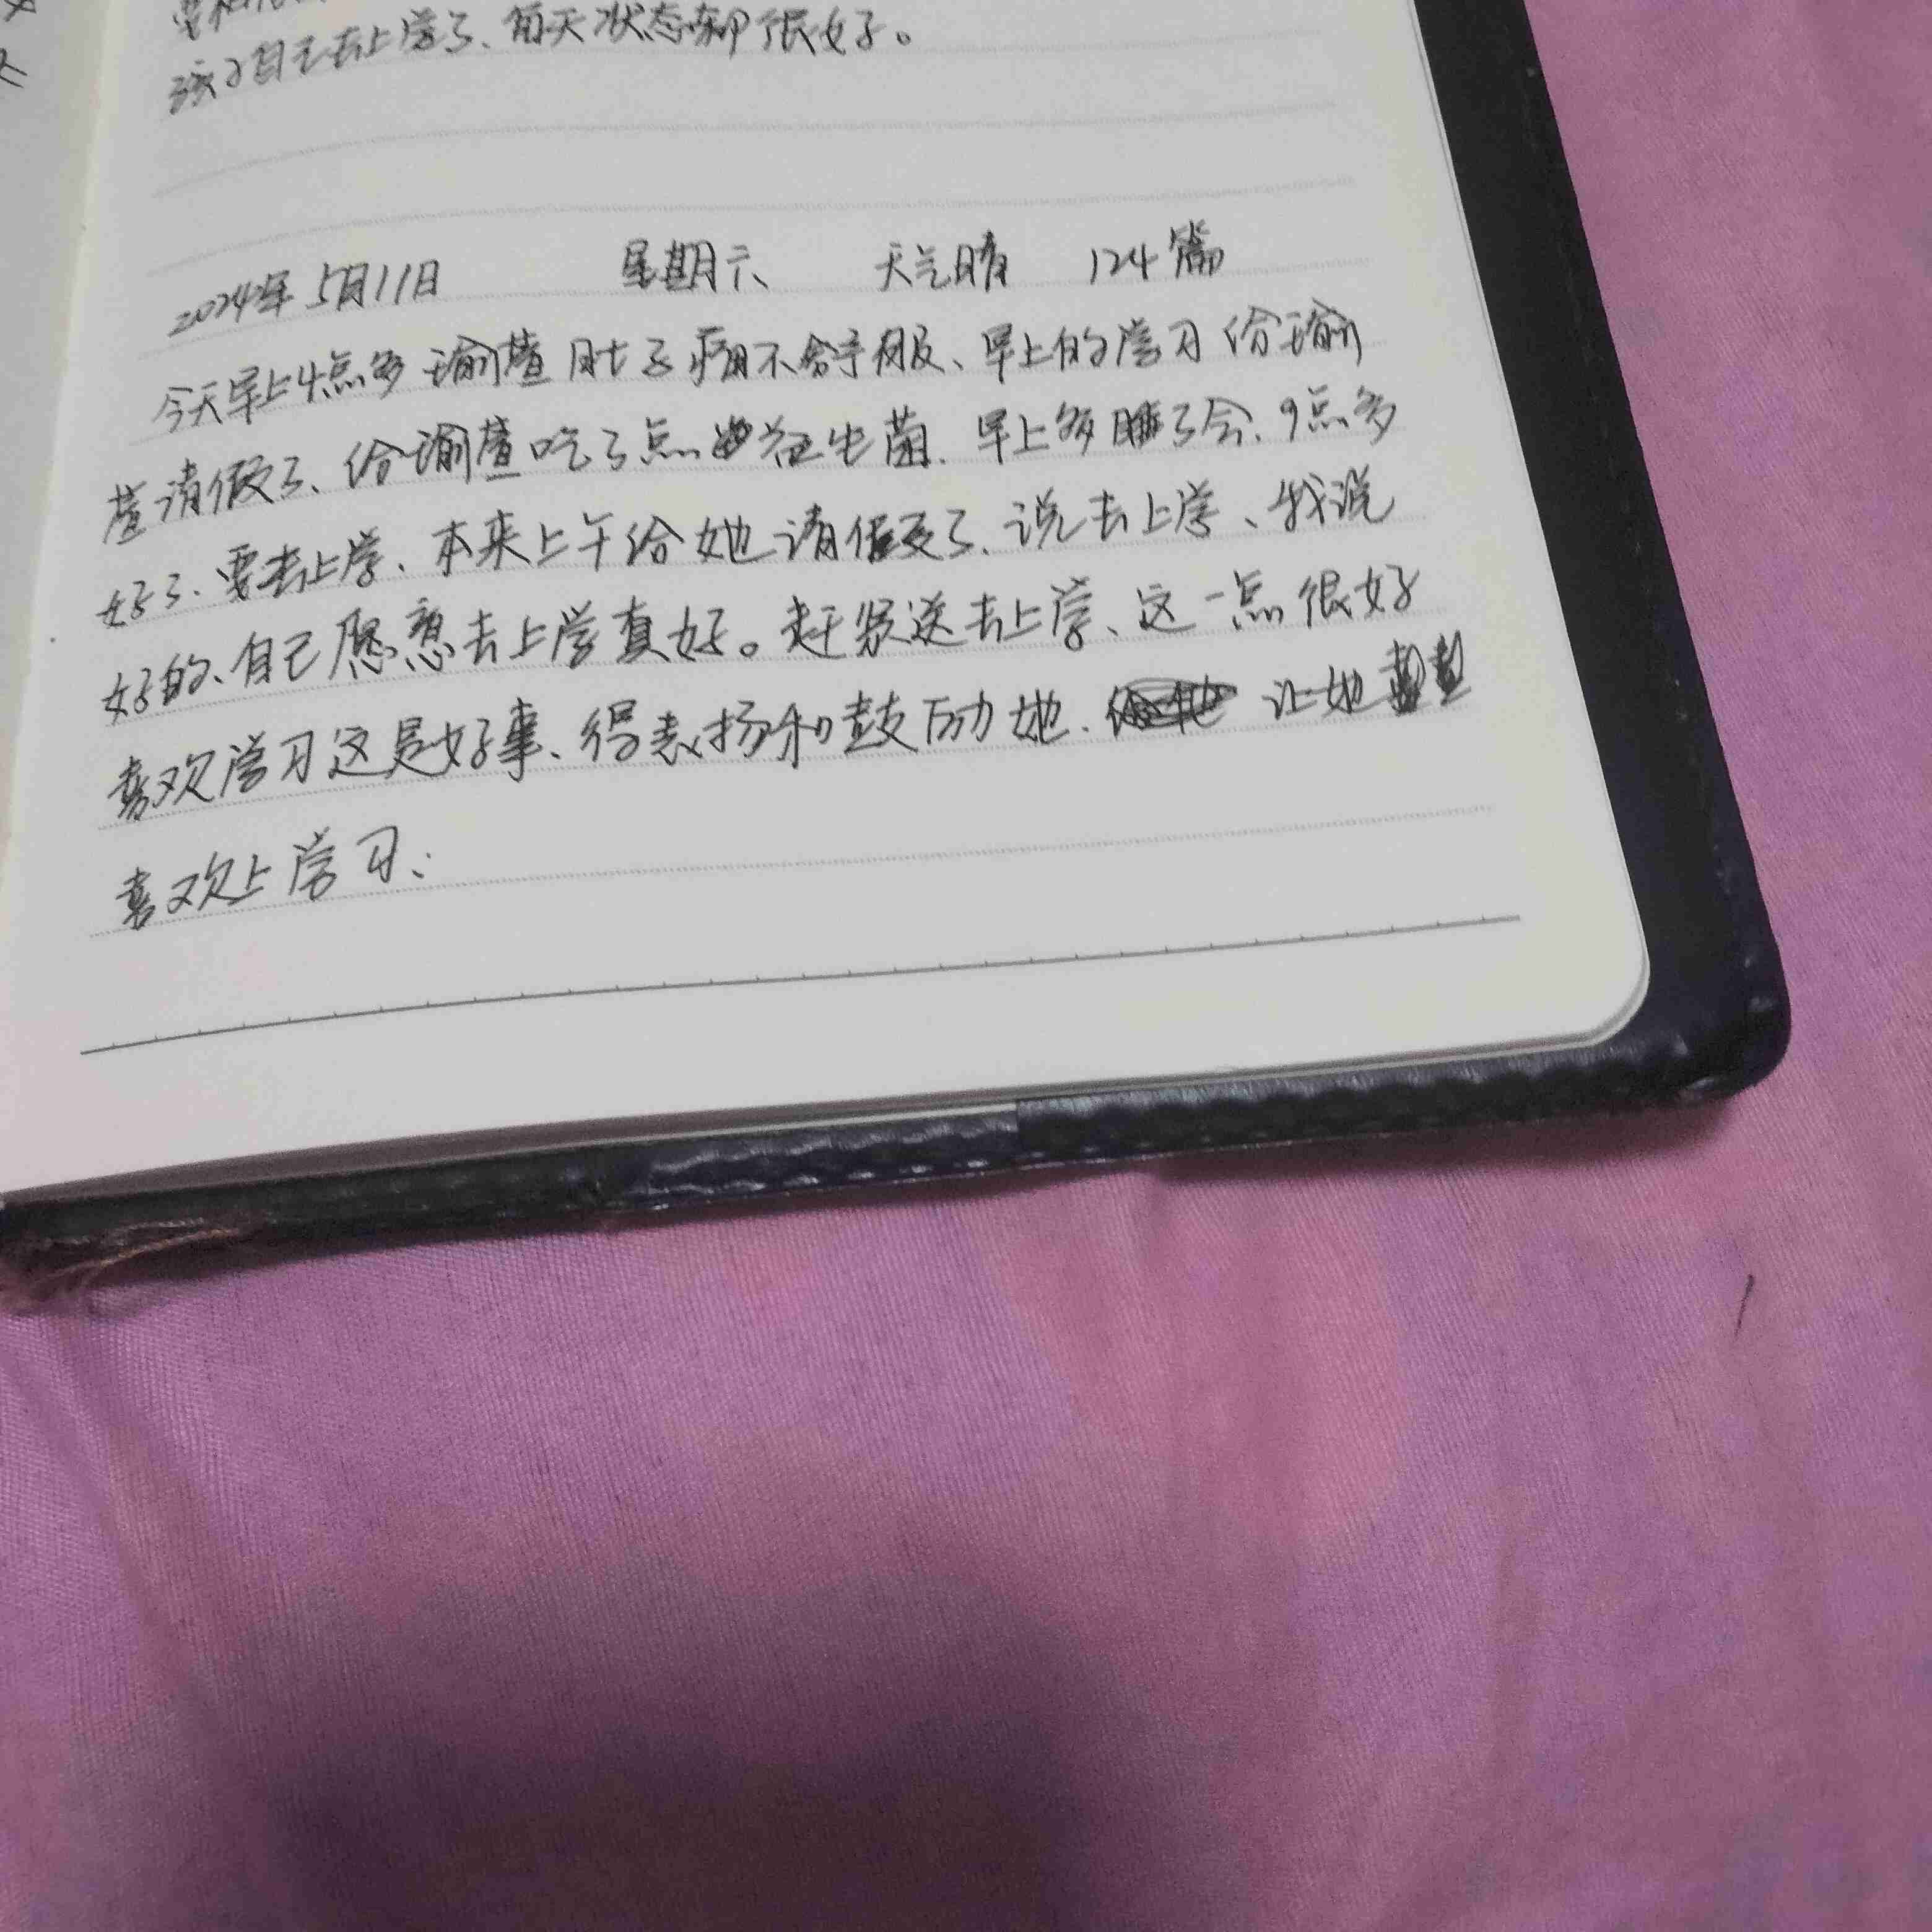 孩子自己去上学了、每天状态都很好。
2024年5月11日 星期六 天气晴 124篇
今天早上4点多瑜萱肚子痛不舒服、早上的学习给瑜
萱请假了、给瑜萱吃了点益生菌、早上多睡了会、9点多
好了、要去上学、本来上午给她请假了、说去上学、我说
好的、自己愿意去上学真好。赶紧送去上学、这一点很好
喜欢学习这是好事、得表扬和鼓励她、让她
喜欢上学习、